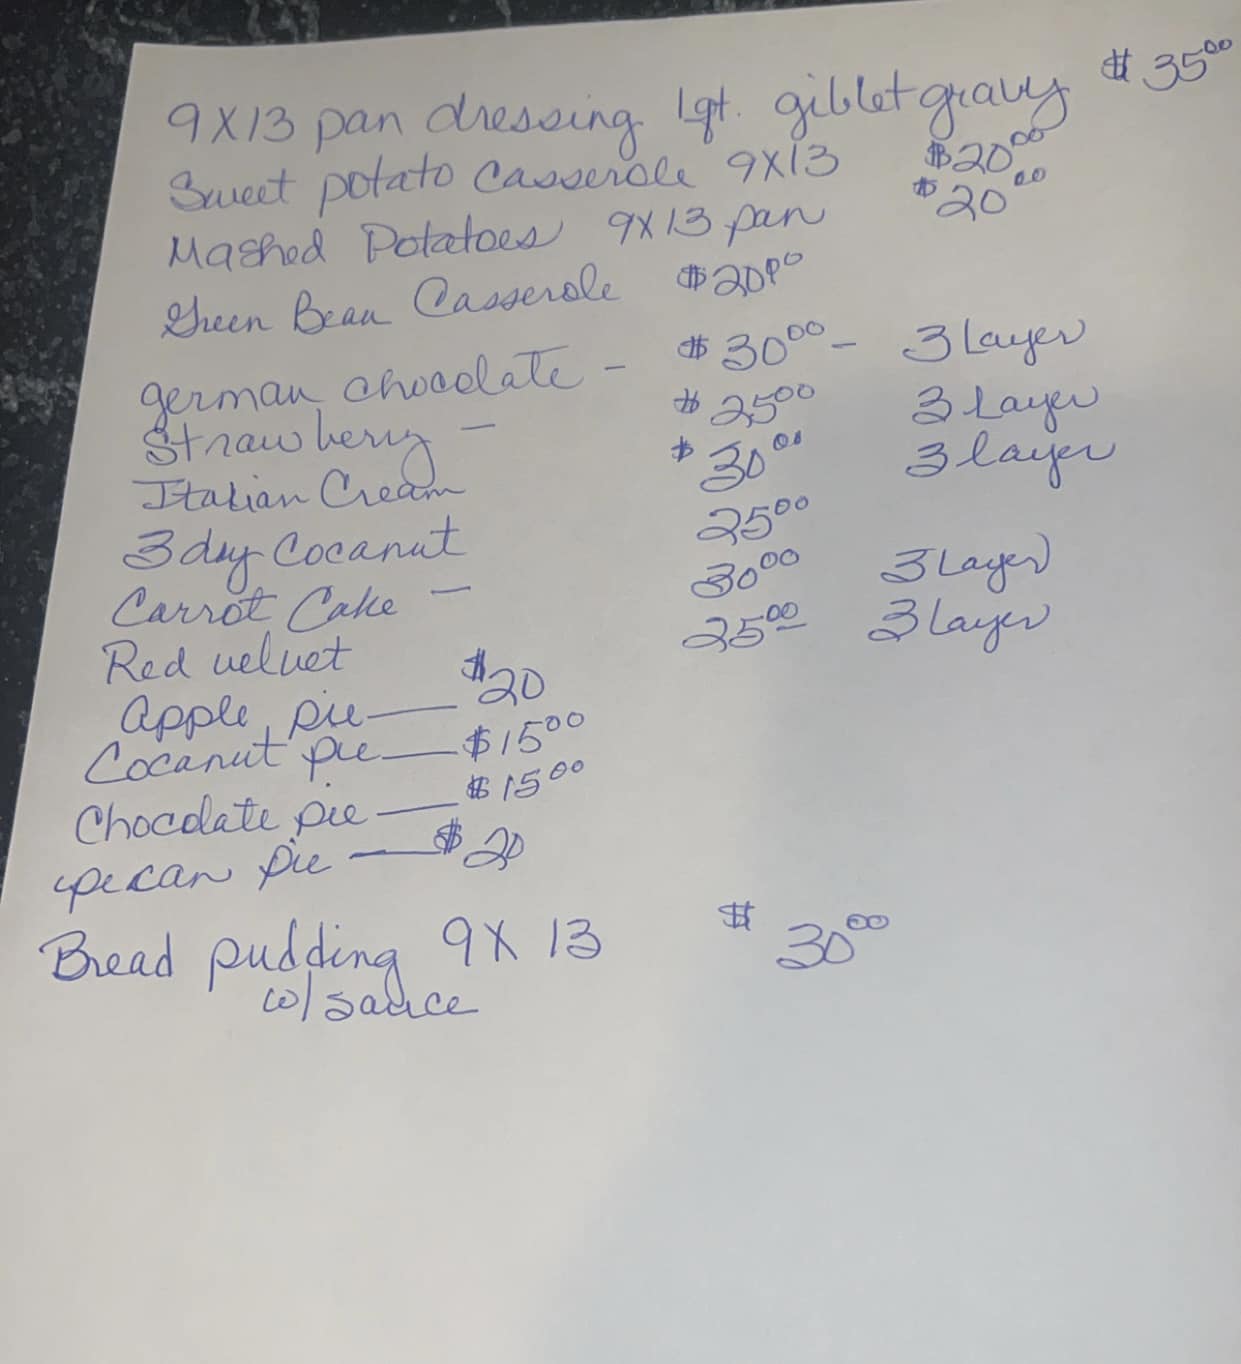 9X13 pan dressing 1qt. giblet gravy $35.00
Sweet potato Casserole 9X13 $20.00
Mashed Potatoes 9X13 pan $20.00
Green Bean Casserole $20.00
german chocolate - $30.00 - 3 Layer
Strawberry - $25.00 3 Layer
Italian Cream $30.00 3 layer
3 day Cocanut 25.00
Carrot Cake - 30.00 3 Layer
Red velvet 25.00 3 Layer
apple pie — $20
Cocanut pie — $15.00
Chocolate pie — $15.00
pecan pie — $20
Bread pudding 9X13 $30.00
w/ sauce